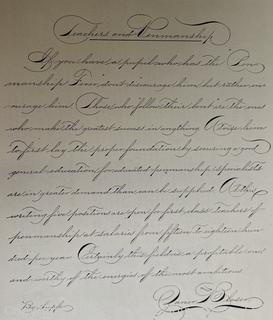 Teachers and Penmanship
If you have a pupil who has the "Pen-
manship Fever" don't discourage him but rather en-
courage him. Those who follow their bent are the ones
who make the greatest success in anything. Advise him
to first lay the proper foundation by securing a good
general education, for educated penmanship specialists
are in greater demand than can be supplied. At this
writing five positions are open for first class teachers of
penmanship at salaries from fifteen to eighteen hun-
dred per year. Certainly this field is a profitable one
and worthy of the energies of the most ambitious.